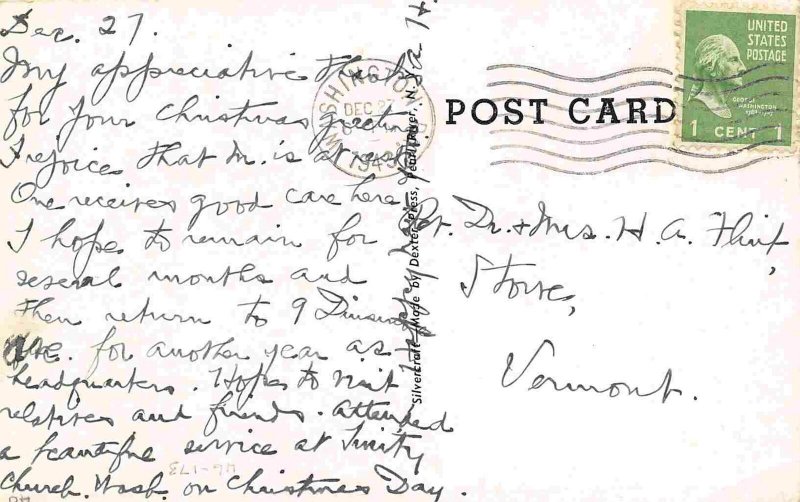 Dec. 27.
My appreciative thanks
for your Christmas greetings
I rejoice that M. is at rest.
One receives good care here
I hope to remain for
several months and
then return to 9
Ave. for another year as
headquarters. Hope to visit
relatives and friends. Attended
a beautiful service at Trinity
Church. Wash. on Christmas Day.
46-173
Silvercraft Made by Dexter Press, Pearl River, N.Y.
WASHINGTON
DEC 27
194
POST CARD
UNITED
STATES
POSTAGE
GEORGE
WASHINGTON
1789-1797
1 CENT 1
Rt. Dr. & Mrs. H. A. Flint,
Stowe,
Vermont.